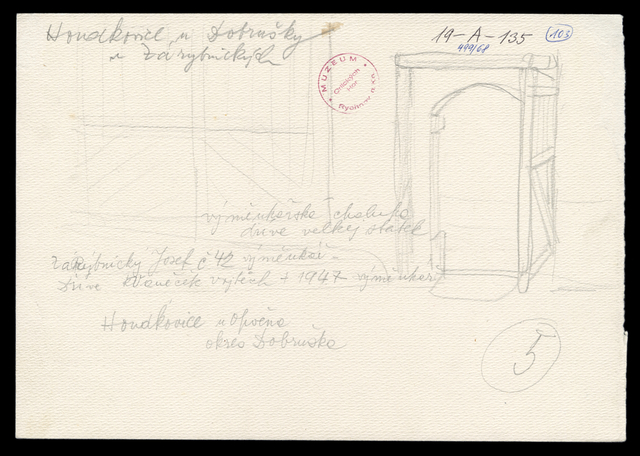 Houdkovice u Dobrušky
u Zárybnických
19-A-135
103
499/68
MUZEUM
Orlických
hor
Rychnov n. Kn.
výměnkářská chalupa
dříve velký statek
Zárybnický Josef č 42 výměnkář -
Dříve Vaněček Vojtěch + 1947 výměnkář
Houdkovice u Opočna
okres Dobruška
5